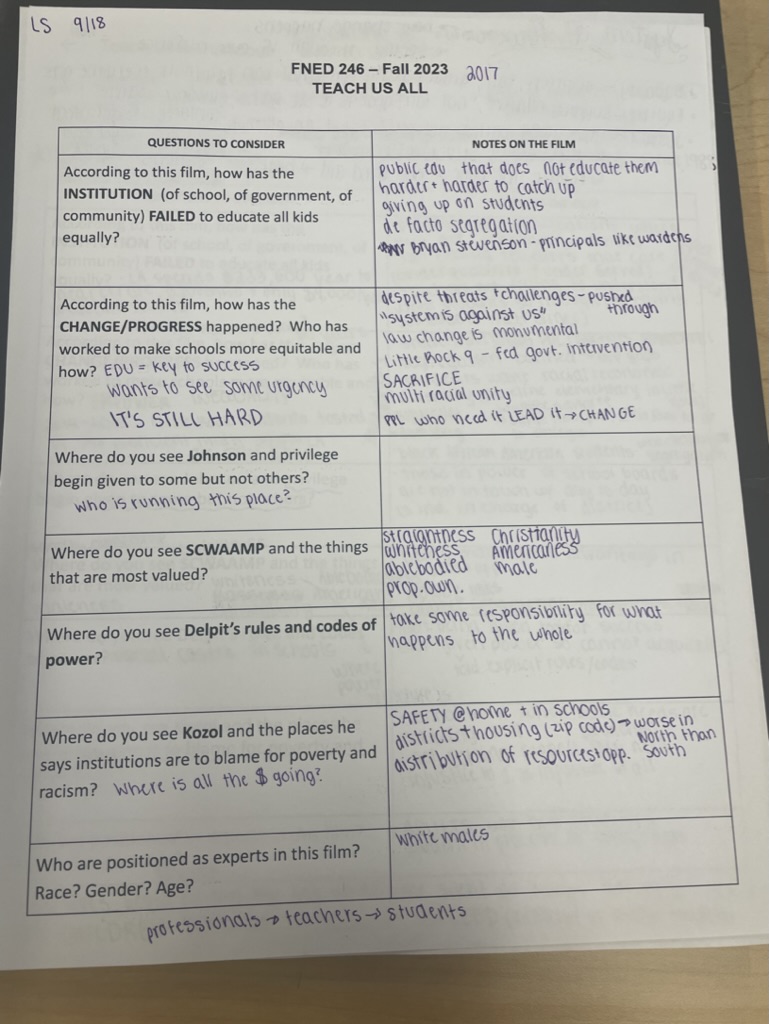 LS 9/18
FNED 246 – Fall 2023 2017
TEACH US ALL
QUESTIONS TO CONSIDER
NOTES ON THE FILM
According to this film, how has the
INSTITUTION (of school, of government, of
community) FAILED to educate all kids
equally?
public edu that does not educate them
harder + harder to catch up
giving up on students
de facto segregation
Bryan Stevenson - principals like wardens
According to this film, how has the
CHANGE/PROGRESS happened? Who has
worked to make schools more equitable and
how? EDU = key to success
wants to see some urgency
IT'S STILL HARD
despite threats + challenges - pushed
through
"system is against us"
law change is monumental
Little Rock 9 - fed govt. intervention
SACRIFICE
multi racial unity
PPL who need it LEAD it → CHANGE
Where do you see Johnson and privilege
begin given to some but not others?
who is running this place?
Where do you see SCWAAMP and the things
that are most valued?
straightness Christianity
whiteness Americaness
ablebodied male
prop.own.
Where do you see Delpit's rules and codes of
power?
take some responsibility for what
happens to the whole
Where do you see Kozol and the places he
says institutions are to blame for poverty and
racism? Where is all the $ going?
SAFETY @ home + in schools
districts + housing (zip code) → worse in
North than
South
distribution of resources + opp.
Who are positioned as experts in this film?
Race? Gender? Age?
white males
professionals → teachers → students